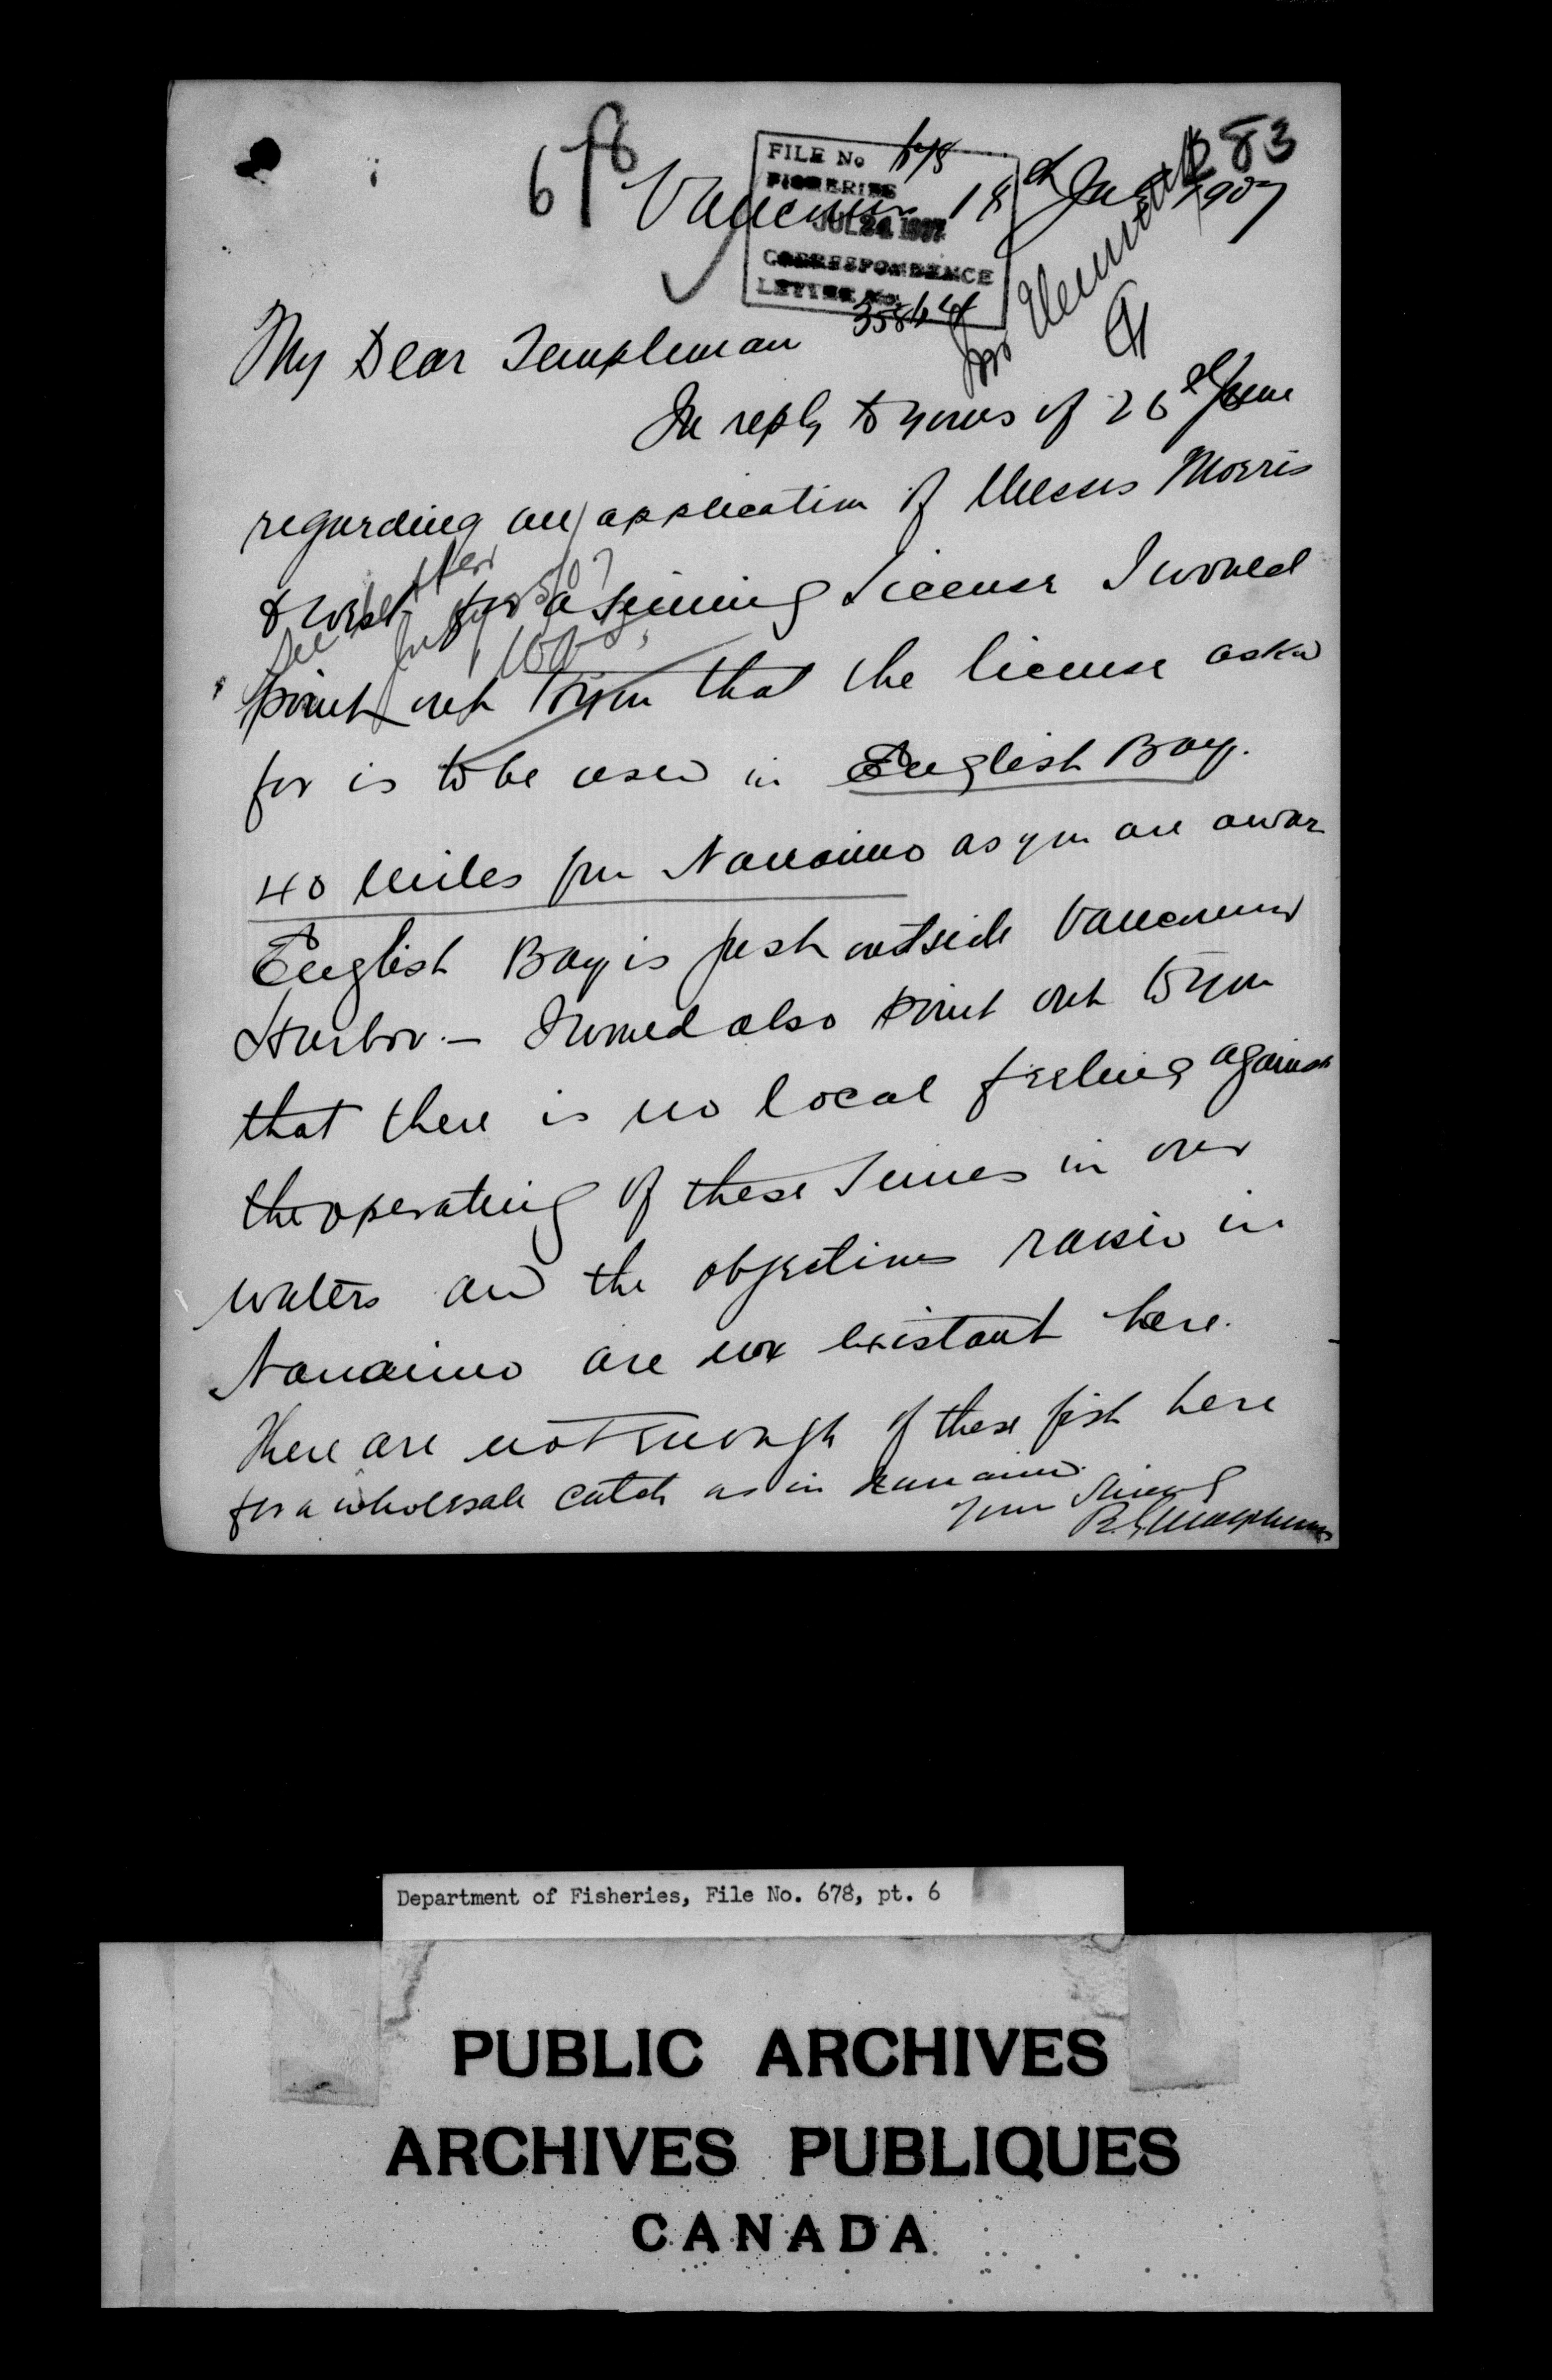 678
83
FILE No 678
FISHERIES
JUL 24 1907
CORRESPONDENCE
LETTER No.
Vancouver 18th 1907
My Dear Templeman
In reply to yours of 26th June
regarding an application of Messrs Morris
& West for a Seining License I would
point out to you that the license asked
for is to be used in English Bay.
40 miles from Nanaimo as you are aware
English Bay is just outside Vancouver
Harbor. — I would also point out to you
that there is no local feeling against
the operating of these Seines in our
waters and the objections raised in
Nanaimo are not existant here.
There are not enough of these fish here
for a wholesale catch as in Nanaimo.
Yours Sincerely
R. G. Macpherson
Department of Fisheries, File No. 678, pt. 6
PUBLIC ARCHIVES
ARCHIVES PUBLIQUES
CANADA